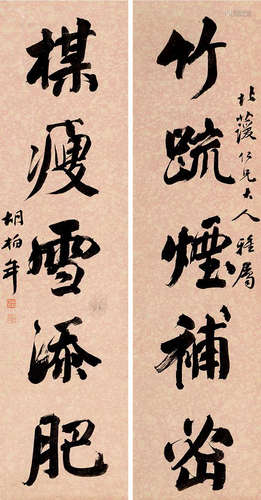 竹疏煙補密
楳瘦雪添肥
仁兄大人雅屬
胡柏年